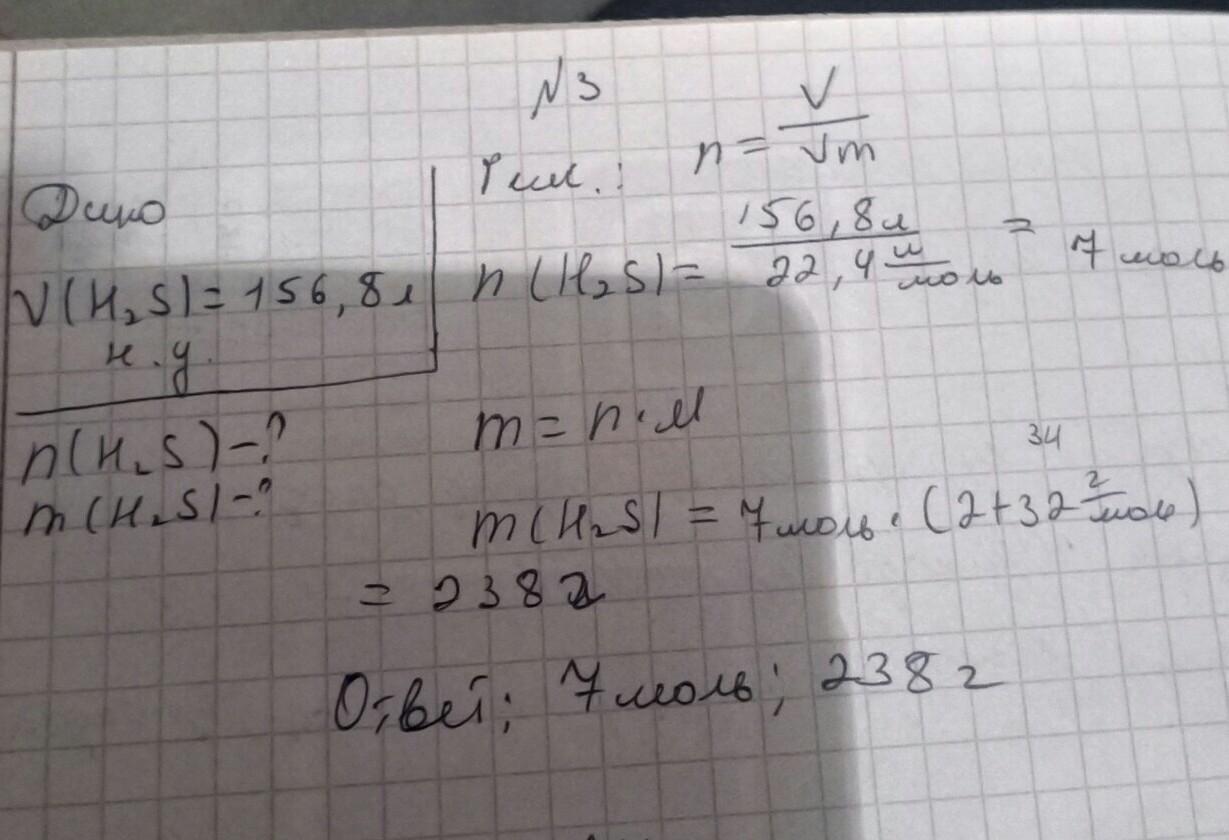 N 3
Дано
V(H₂S) = 156,8 л
н.у.
n(H₂S) - ?
m(H₂S) - ?
Реш.: n = V / Vm
n(H₂S) = 156,8 л / 22,4 л/моль = 7 моль
m = n · M
34
m(H₂S) = 7 моль · (2+32 г/моль)
= 238 г
Ответ: 7 моль; 238 г